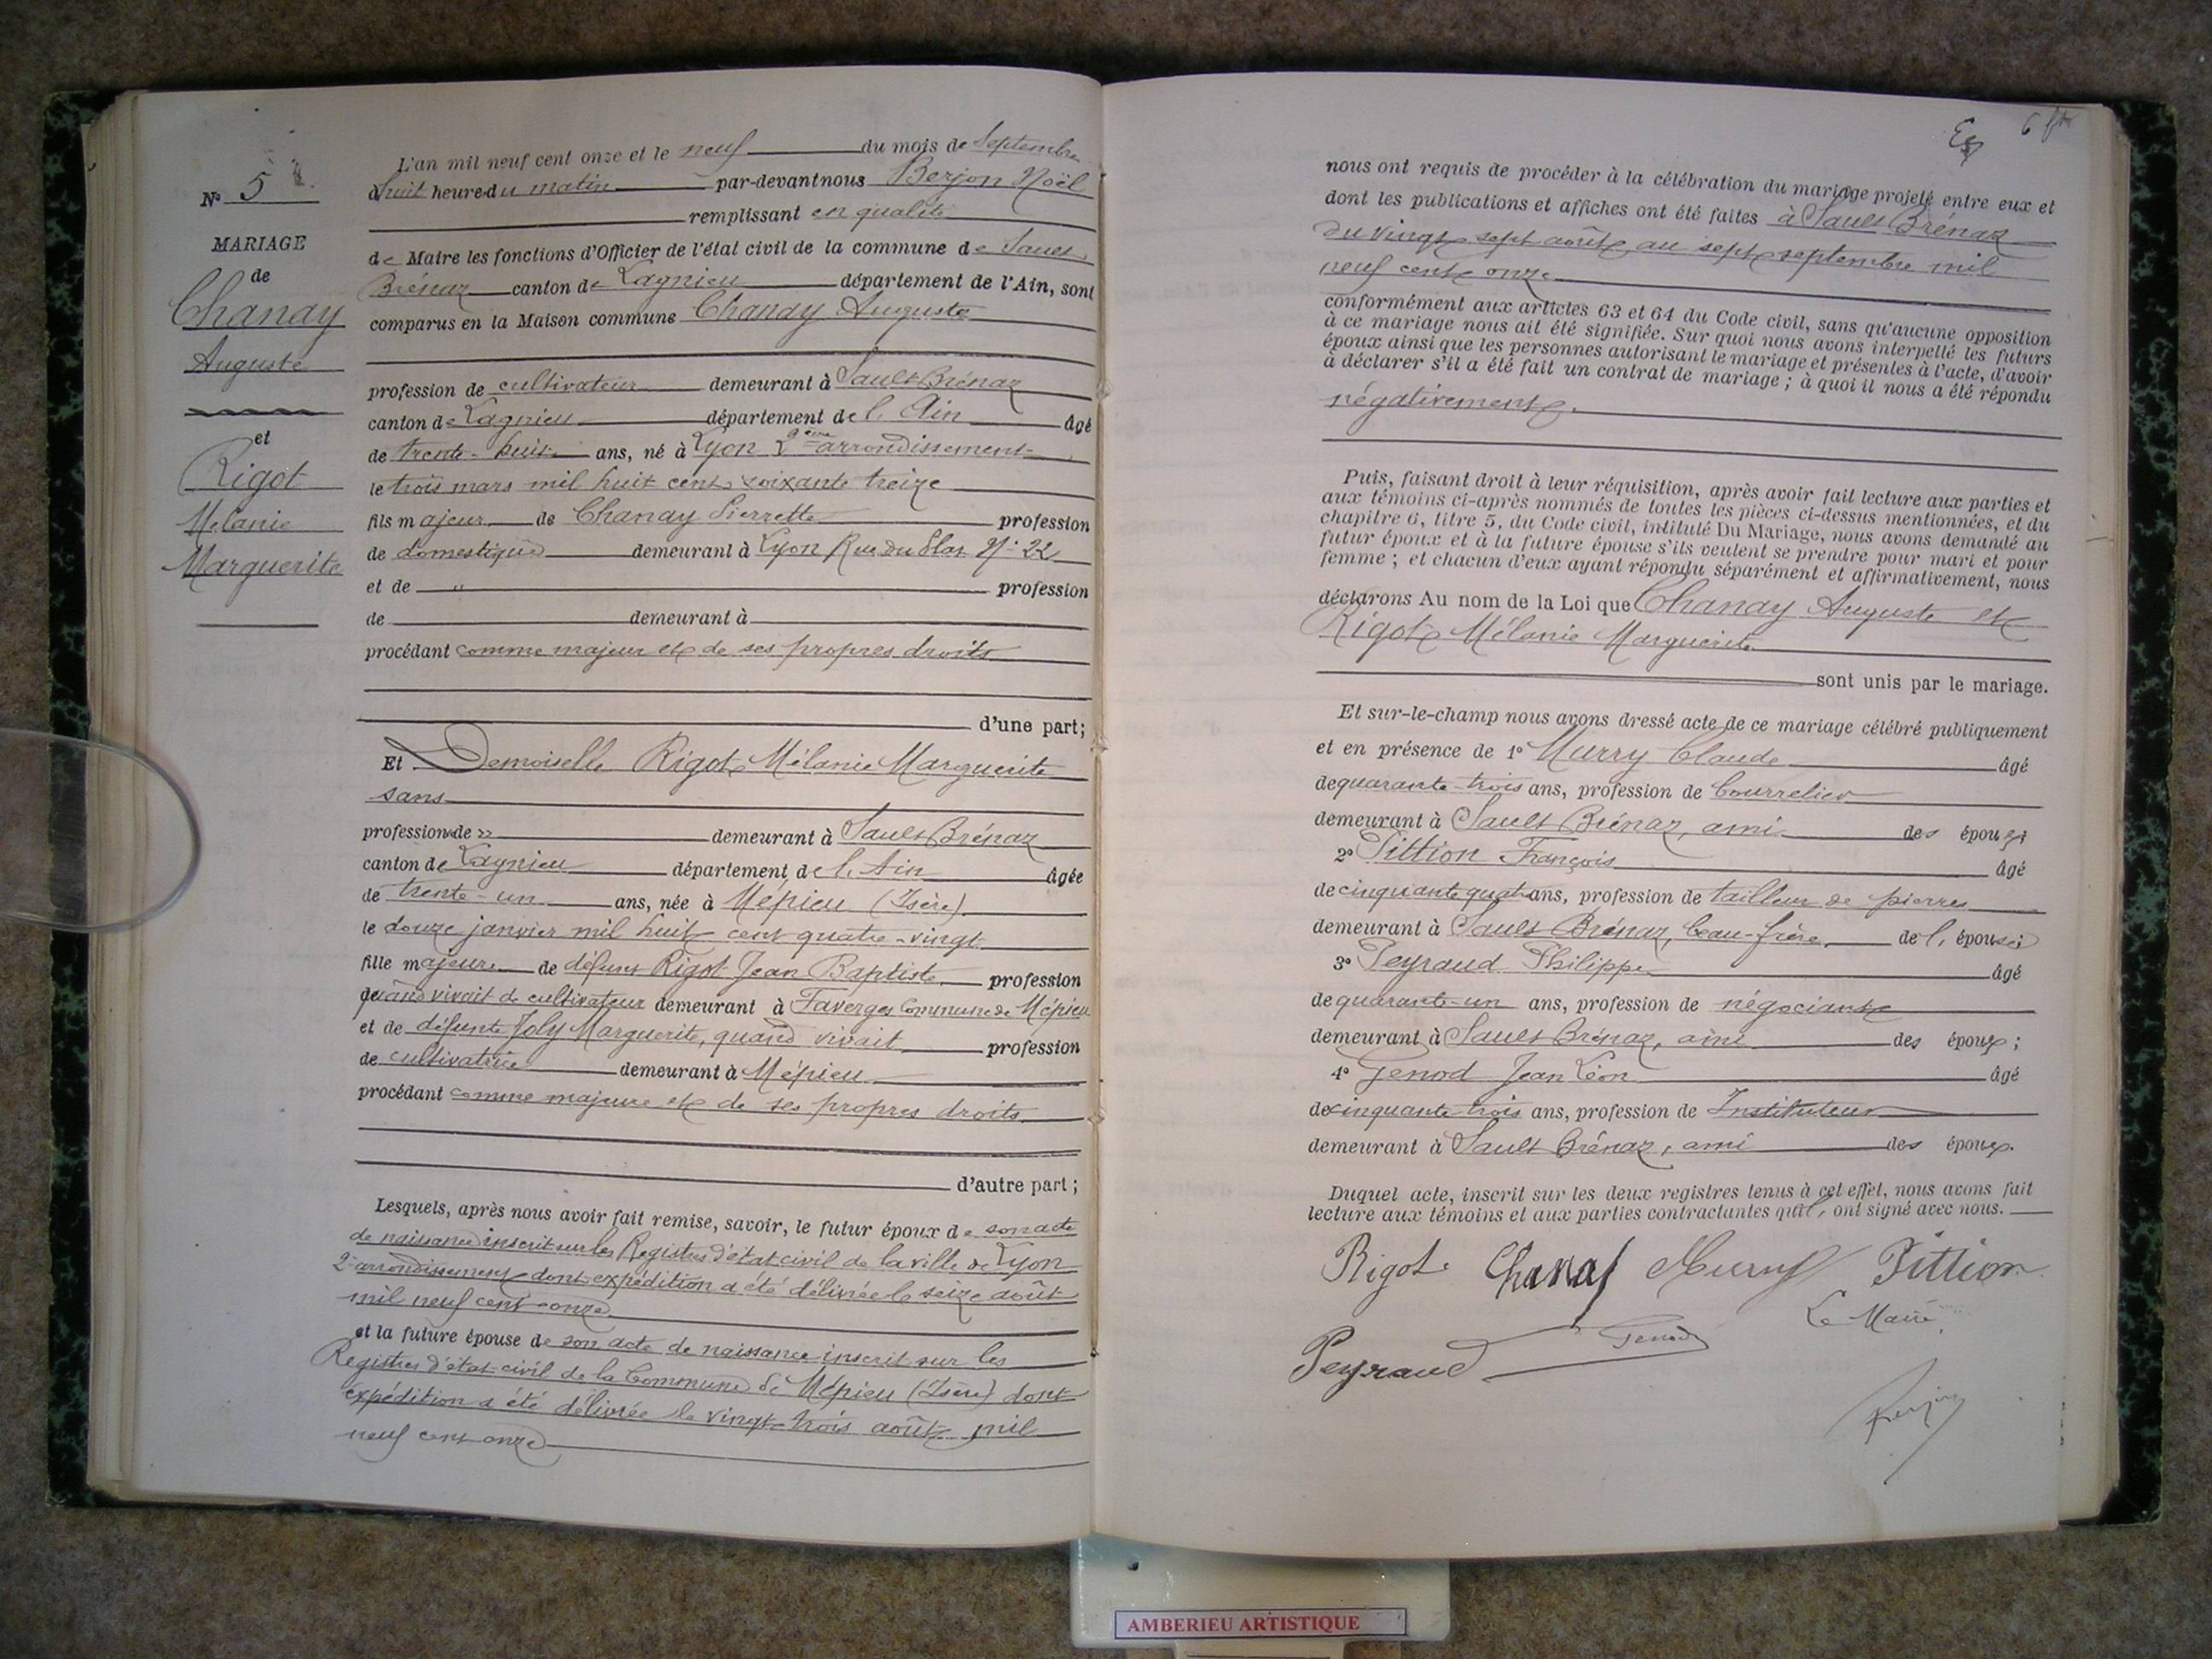 N° 5
MARIAGE
de
Chanay
Auguste
et
Rigot
Mélanie
Marguerite
L'an mil neuf cent onze et le neuf du mois de Septembre
à huit heures du matin par-devant nous Berjon Noël
remplissant en qualité
de Maire les fonctions d'Officier de l'état civil de la commune de Sault
Brénaz canton de Lagnieu département de l'Ain, sont
comparus en la Maison commune Chanay Auguste
profession de cultivateur demeurant à Sault Brénaz
canton de Lagnieu département de l'Ain âgé
de trente-huit ans, né à Lyon 2ème arrondissement
le trois mars mil huit cent soixante treize
fils majeur de Chanay Pierrette profession
de domestique demeurant à Lyon Rue du Plat N° 22
et de " profession
de demeurant à
procédant comme majeur et de ses propres droits
d'une part;
Et Demoiselle Rigot Mélanie Marguerite
sans
profession de " demeurant à Sault Brénaz
canton de Lagnieu département de l'Ain âgée
de trente-un ans, née à Mépieu (Isère)
le douze janvier mil huit cent quatre-vingt
fille majeure de défunt Rigot Jean Baptiste profession
quand vivait de cultivateur demeurant à Faverges Commune de Mépieu
et de défunte Joly Marguerite, quand vivait profession
de cultivatrice demeurant à Mépieu
procédant comme majeure et de ses propres droits
d'autre part;
Lesquels, après nous avoir fait remise, savoir, le futur époux de son acte
de naissance inscrit sur les Registres d'état civil de la ville de Lyon
2e arrondissement dont expédition a été délivrée le seize août
mil neuf cent onze
et la future épouse de son acte de naissance inscrit sur les
Registres d'état-civil de la Commune de Mépieu (Isère) dont
expédition a été délivrée le vingt-trois août mil
neuf cent onze
6
nous ont requis de procéder à la célébration du mariage projeté entre eux et
dont les publications et affiches ont été faites à Sault Brénaz
du vingt sept août au sept septembre mil
neuf cent onze
conformément aux articles 63 et 64 du Code civil, sans qu'aucune opposition
à ce mariage nous ait été signifiée. Sur quoi nous avons interpellé les futurs
époux ainsi que les personnes autorisant le mariage et présentes à l'acte, d'avoir
à déclarer s'il a été fait un contrat de mariage; à quoi il nous a été répondu
négativement.
Puis, faisant droit à leur réquisition, après avoir fait lecture aux parties et
aux témoins ci-après nommés de toutes les pièces ci-dessus mentionnées, et du
chapitre 6, titre 5, du Code civil, intitulé Du Mariage, nous avons demandé au
futur époux et à la future épouse s'ils veulent se prendre pour mari et pour
femme; et chacun d'eux ayant répondu séparément et affirmativement, nous
déclarons Au nom de la Loi que Chanay Auguste et
Rigot Mélanie Marguerite
sont unis par le mariage.
Et sur-le-champ nous avons dressé acte de ce mariage célébré publiquement
et en présence de 1° Murry Claude âgé
de quarante-trois ans, profession de bourrelier
demeurant à Sault Brénaz, ami des époux
2° Pittion François âgé
de cinquante quatre ans, profession de tailleur de pierres
demeurant à Sault Brénaz, beau-frère de l'épouse
3° Peyraud Philippe âgé
de quarante-un ans, profession de négociant
demeurant à Sault Brénaz, ami des époux;
4° Genod Jean Léon âgé
de cinquante trois ans, profession de Instituteur
demeurant à Sault Brénaz, ami des époux.
Duquel acte, inscrit sur les deux registres tenus à cet effet, nous avons fait
lecture aux témoins et aux parties contractantes qui, ont signé avec nous.
Rigot Chanay Murry Pittion
Le Maire
Peyraud Genod
Berjon
AMBERIEU ARTISTIQUE